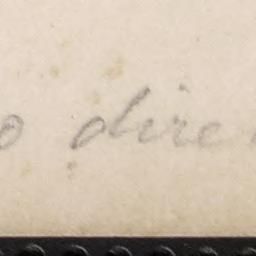 o dire